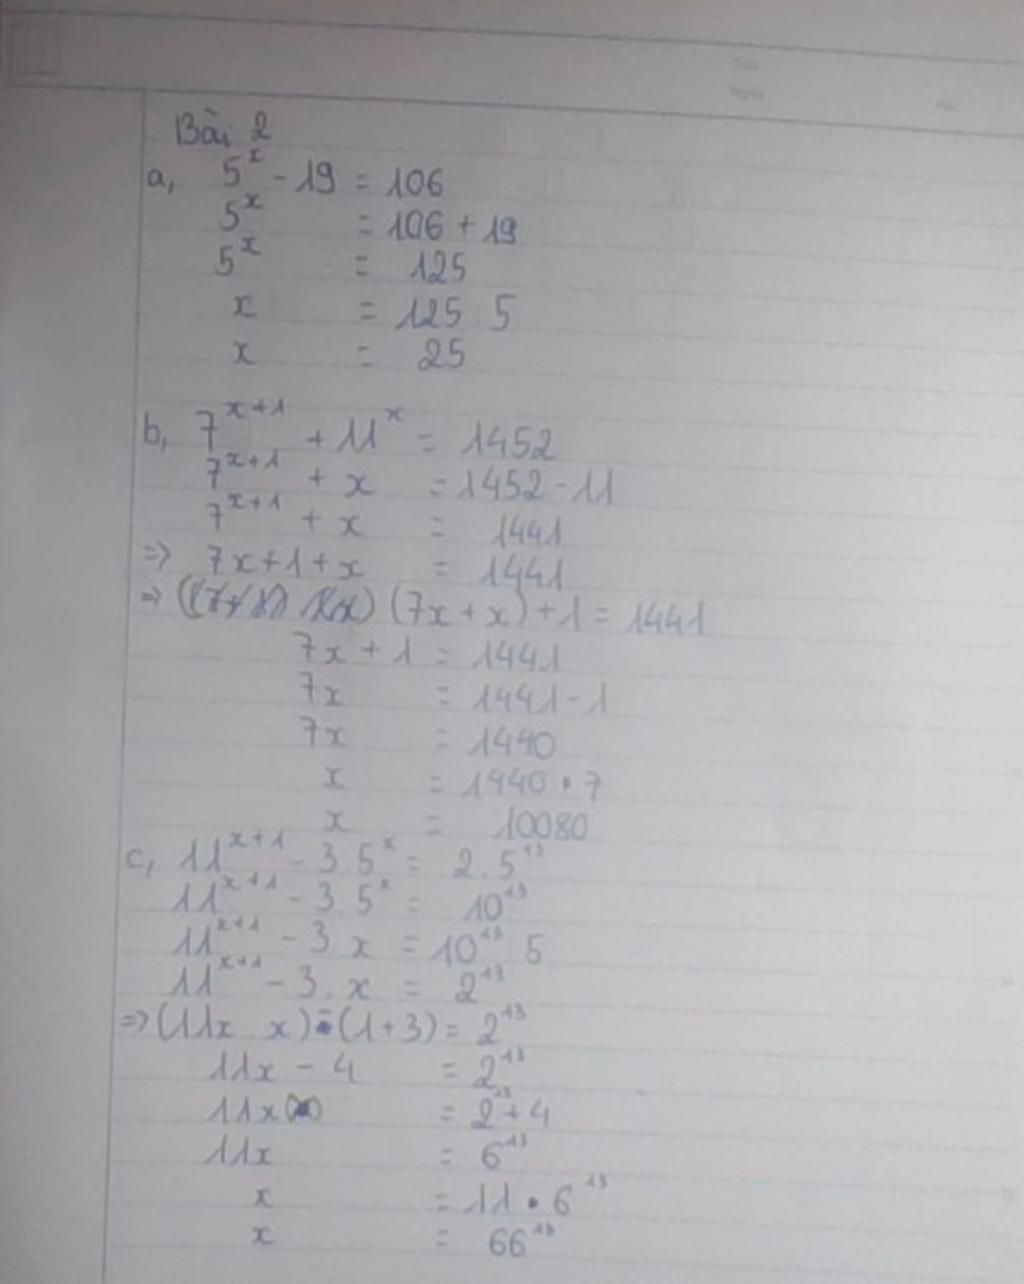 Bài 2
a, 5^x - 19 = 106
5^x = 106 + 19
5^x = 125
x = 125 : 5
x = 25
b, 7^{x+1} + 11^x = 1452
7^{x+1} + x = 1452 - 11
7^{x+1} + x = 1441
=> 7x+1+x = 1441
=> (7x + x) + 1 = 1441
7x + 1 = 1441
7x = 1441 - 1
7x = 1440
x = 1440 · 7
x = 10080
c, 11^{x+1} - 3.5^x = 2.5^{13}
11^{x+1} - 3.5^x = 10^{13}
11^{x+1} - 3 x = 10^{13} 5
11^{x+1} - 3.x = 2^{13}
=> (11x x) - (1+3) = 2^{13}
11x - 4 = 2^{13}
11x = 2^{13} + 4
11x = 6^{13}
x = 11 · 6^{13}
x = 66^{13}